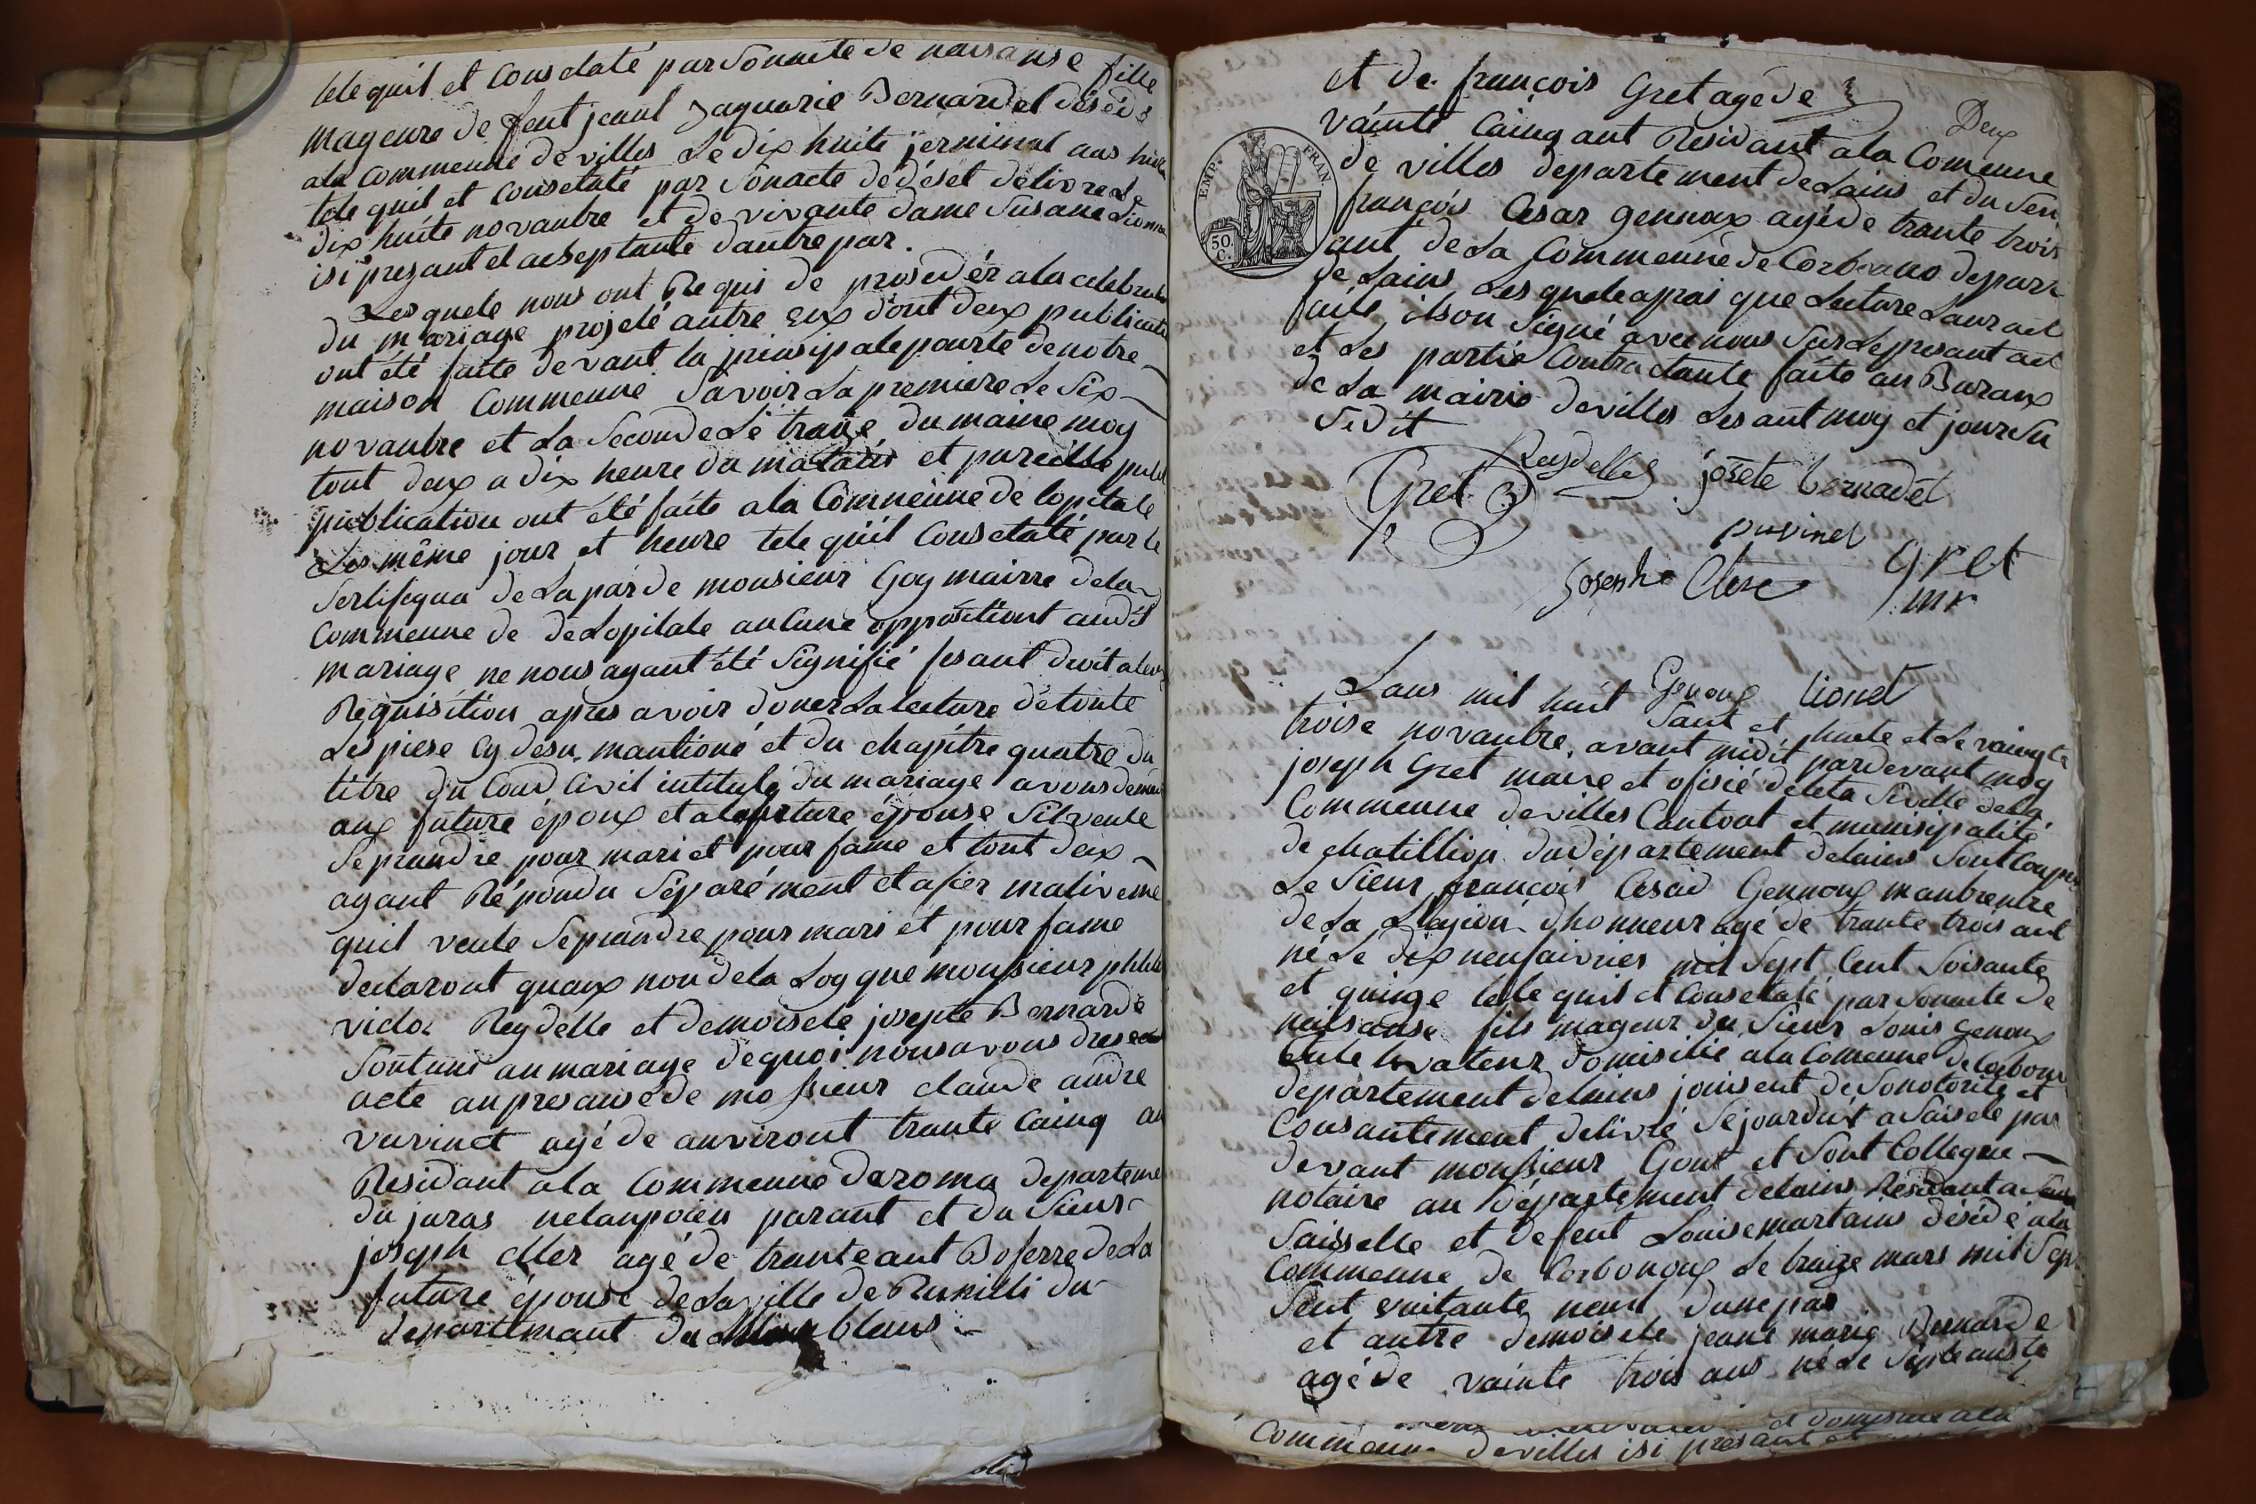 tele quil et Consetaté par Sonacte de naisanse fille
mageure de feut jeant Zaquarie Bernardet désédé
ala commeune de villes Le dix huite jerminal ans huite
tele quil et Consetaté par Sonacte dedéset délivré Le
dix huite novanbre et de vivante dame Susane
isi présant et acseptante dautre par.
Les quele nous ont Requi de prosedér ala celebration
du mariage projeté autre eux dont deux publication
ont été faite devant la prinsipale pourte de notre
maison Commeune Savoir La premiere Le Six
novanbre et La Seconde Le traize du maime moy
tout deux a dix heure du matain et pareille publi
publication ont été faite ala Commeune de lopitale
Les même jour et heure tele quil Consetaté par le
Sertifiqua de La par de monsieur Goy mairre dela
Commeune de deLopitale aucune oppositiont audit
mariage ne nous ayant été Signifié fesant droit aleur
Réquisition apres avoir doner La lecture de toute
Les piese Cy desu mantioné et du chapitre quatre du
titre du Coud Civil intitulé du mariage avons demandé
aux futuré époux et ala futuré épouse Sil veule
Se prandre pour mari et pour fame et tout deux
ayant Répondu Séparément et afier mativeme
quil veule Se prandre pour mari et pour fame
declaront quaux non dela Loy que monsieur philibe
victor Reydelle et demoisele josepte Bernarde
Sontuni au mariage dequoi nous avons drese
acte au presance de mosieur claude andre
vuvinet agé de anviront trante Cainq an
Residant ala Commeune daroma departeme
du juras parant et du Sieur
joseph Cler agé de trante ant Boferre de La
futuré épouse de La ville de Rumilli du
departemant du blanc
et de françois Gret agé de
Deux
vainte Cainq ant Residant ala Comeune
de villes departement de Lains et du Sieur
françois Cesar gennoux agé de trante trois
EMP. FRAN.
50. C.
ant de La Commeune de Corbono depart
de Lains Les quele aprai que Lecture Leur ait
faite ilson Signé avec nous Sur Le presant act
et Les partie Contractante faite au Buraux
de La mairie de villes Les ant moy et jour Su
Sedit
Gret Reydellet josete bernadet
puvinet
joseph Clerc gret
mr
Genoux Lionet
Lans mil huit Sant et huite et Le vaingte
troise novanbre avant midit pardevant moy
joseph Gret maire et ofisié deleta Siville dela
Commeune de villes Cantont et munisipalité
de chatillion du département delains Sont Conparu
Le Sieur françois Cesaid Gennoux manbrentre
de La Légion dhonneur agé de trante trois ant
né Le dix neuf aivrier mil Sept Cent Soisante
et quinze tele quil et Consetaté par Sonacte de
naisanse fils mageur du Sieur Louis Genoux
domisilié ala Comeune de Corbono
département delains jouisent de Sonotorité et
Consantement delivré Sejourduit a Saisele par
devant monsieur Gout et Sont Collegue
notaire au département delains Résidant a
Saisselle et defeut Louise martains désédé ala
Commeune de Corbonoux Le traize mars mil Sept
Sent euitante neuf dune par
et autre demoisele jeane marie Bernarde
agé de vainte trois ans né Le Septeauste
et domisilié ala
Commeune de villes isi présant et